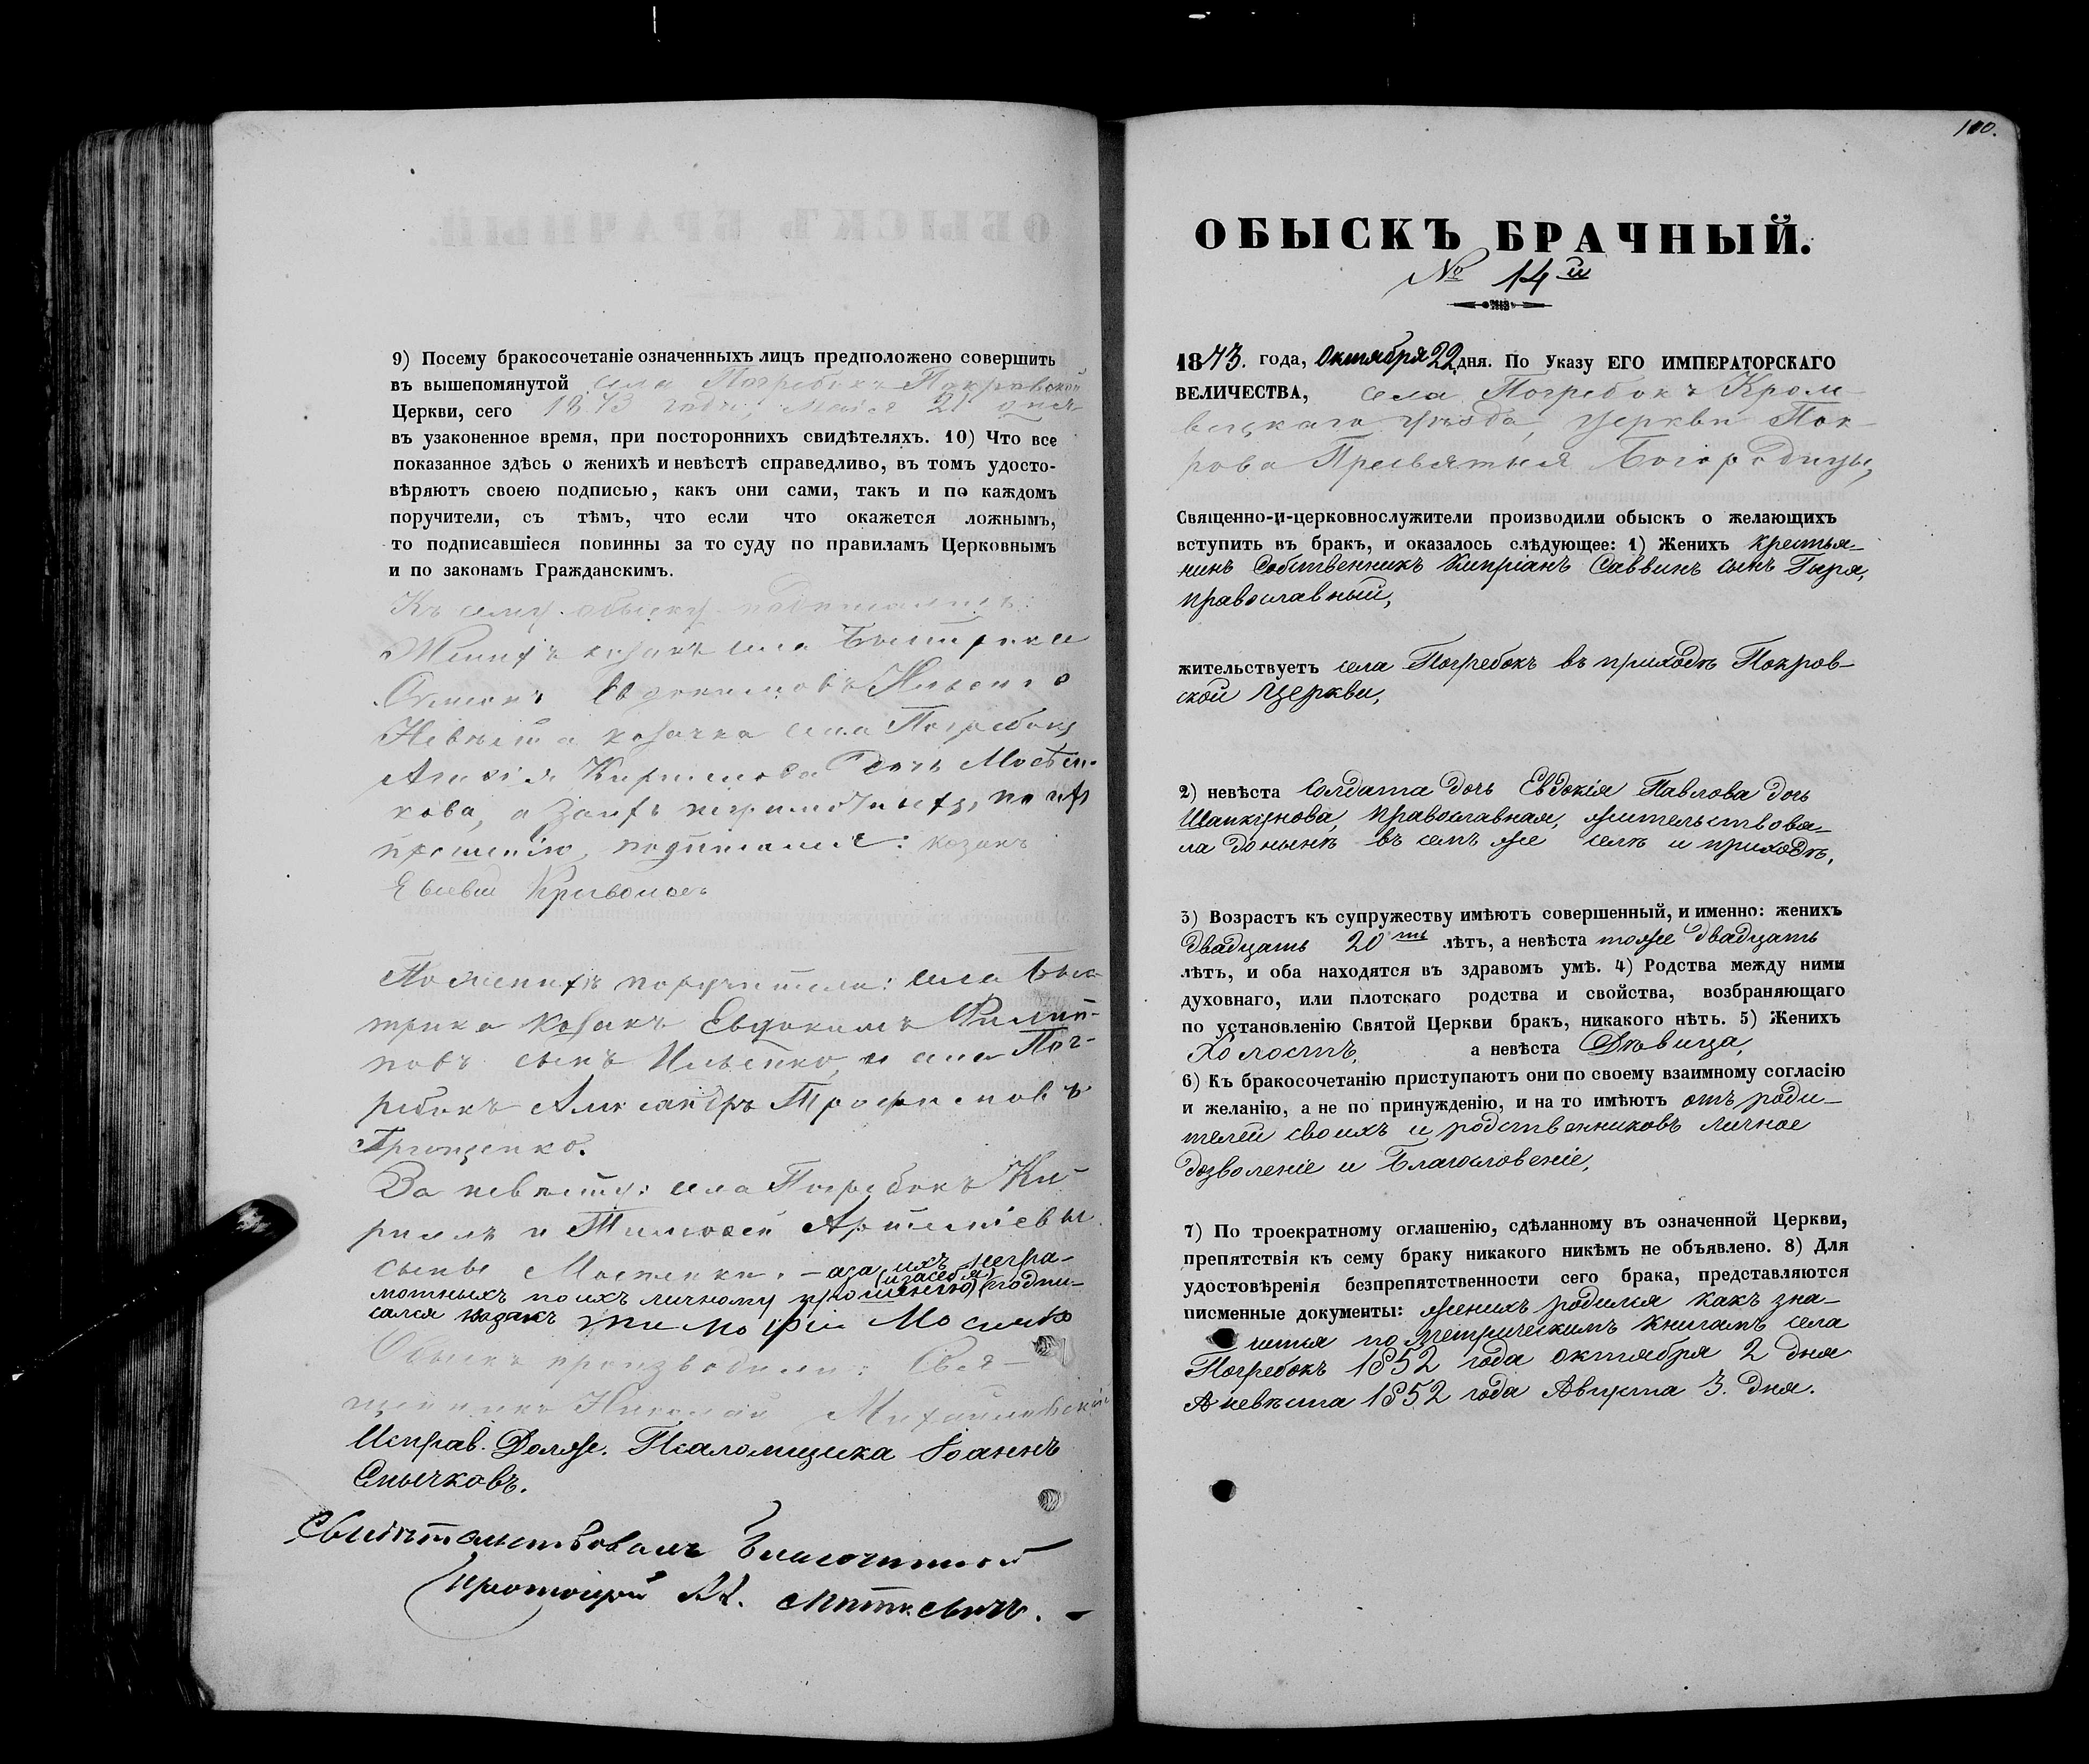 9) Посему бракосочетаніе означенныхъ лицъ предположено совершить
въ вышепомянутой села Погребокъ Покровской
Церкви, сего 1873 года, Маія 21 дня
въ узаконенное время, при постороннихъ свидѣтеляхъ. 10) Что все
показанное здѣсь о женихѣ и невѣстѣ справедливо, въ томъ удосто-
вѣряютъ своею подписью, какъ они сами, такъ и по каждомъ
поручители, съ тѣмъ, что если что окажется ложнымъ,
то подписавшіеся повинны за то суду по правиламъ Церковнымъ
и по законамъ Гражданскимъ.
Къ сему обыску подписались:
Женихъ козакъ села Быстрика
Евдокимовъ Ильенко
Невѣста козачка села Погребокъ
Кирилова дочь
кова, а за ихъ неграмотныхъ, по ихъ
прошенію, подписался: козакъ
Евсевій
По женихѣ поручители: села Быс-
трика козакъ Евдокимъ Филип-
повъ сынъ Ильенко, и села Пог-
ребокъ Александръ Трофимовъ
Грищенко.
За невѣсту: села Погребокъ Ки-
рилъ и Тимофей Артеміевы
сыны а за ихъ негра-
(и за себя)
мотныхъ по ихъ личному прошенію подпи-
сался козакъ Тимофій
Обыскъ производили: Свя-
щенникъ Николай Михайловскій
Исправ. Долж. Псаломщика Іоаннъ
Смычковъ.
Свидѣтельствовалъ Благочинный
Протоіерей
100.
ОБЫСКЪ БРАЧНЫЙ.
№ 14й
1873. года, Октября 22 дня. По Указу ЕГО ИМПЕРАТОРСКАГО
ВЕЛИЧЕСТВА, села Погребокъ Кроле-
вецкаго уѣзда, церкви Пок-
рова Пресвятыя Богородицы,
Священно-и-церковнослужители производили обыскъ о желающихъ
вступить въ бракъ, и оказалось слѣдующее: 1) Женихъ крестья-
нинъ Собственникъ Кипріанъ Саввинъ сынъ Гиря,
православный,
жительствуетъ села Погребокъ въ приходѣ Покров-
ской Церкви,
2) невѣста Солдата дочь Евдокія Павлова дочь
Шапкунова, православная, жительствова-
ла донынѣ въ семъ же селѣ и приходѣ,
3) Возрастъ къ супружеству имѣютъ совершенный, и именно: женихъ
двадцать 20ть лѣтъ, а невѣста тоже двадцать
лѣтъ, и оба находятся въ здравомъ умѣ. 4) Родства между ними
духовнаго, или плотскаго родства и свойства, возбраняющаго
по установленію Святой Церкви бракъ, никакого нѣтъ. 5) Женихъ
Холостъ, а невѣста Дѣвица,
6) Къ бракосочетанію приступаютъ они по своему взаимному согласію
и желанію, а не по принужденію, и на то имѣютъ отъ роди-
телей своихъ и родственниковъ личное
дозволеніе и Благословеніе,
7) По троекратному оглашенію, сдѣланному въ означенной Церкви,
препятствія къ сему браку никакого никѣмъ не объявлено. 8) Для
удостовѣренія безпрепятственности сего брака, представляются
писменные документы: женихъ родился какъ зна-
чится по метрическимъ книгамъ села
Погребокъ 1852 года октября 2 дня
А невѣста 1852 года Августа 3. дня.